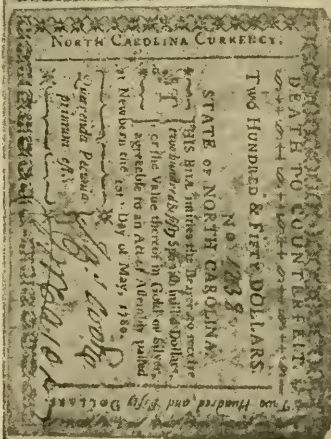 NORTH CAROLINA CURRENCY.
DEATH TO COUNTERFEIT.
TWO HUNDRED & FIFTY DOLLARS
No 1038
STATE OF NORTH CAROLINA
THIS BILL intitles the Bearer to receive
two hundred & fifty Spanish milled Dollars,
or the Value thereof in Gold or Silver
agreeable to an Act of Assembly passed
at Newbern the 10th Day of May, 1780.
Quærenda Pecunia
primum est.
Two Hundred and Fifty DOLLARS